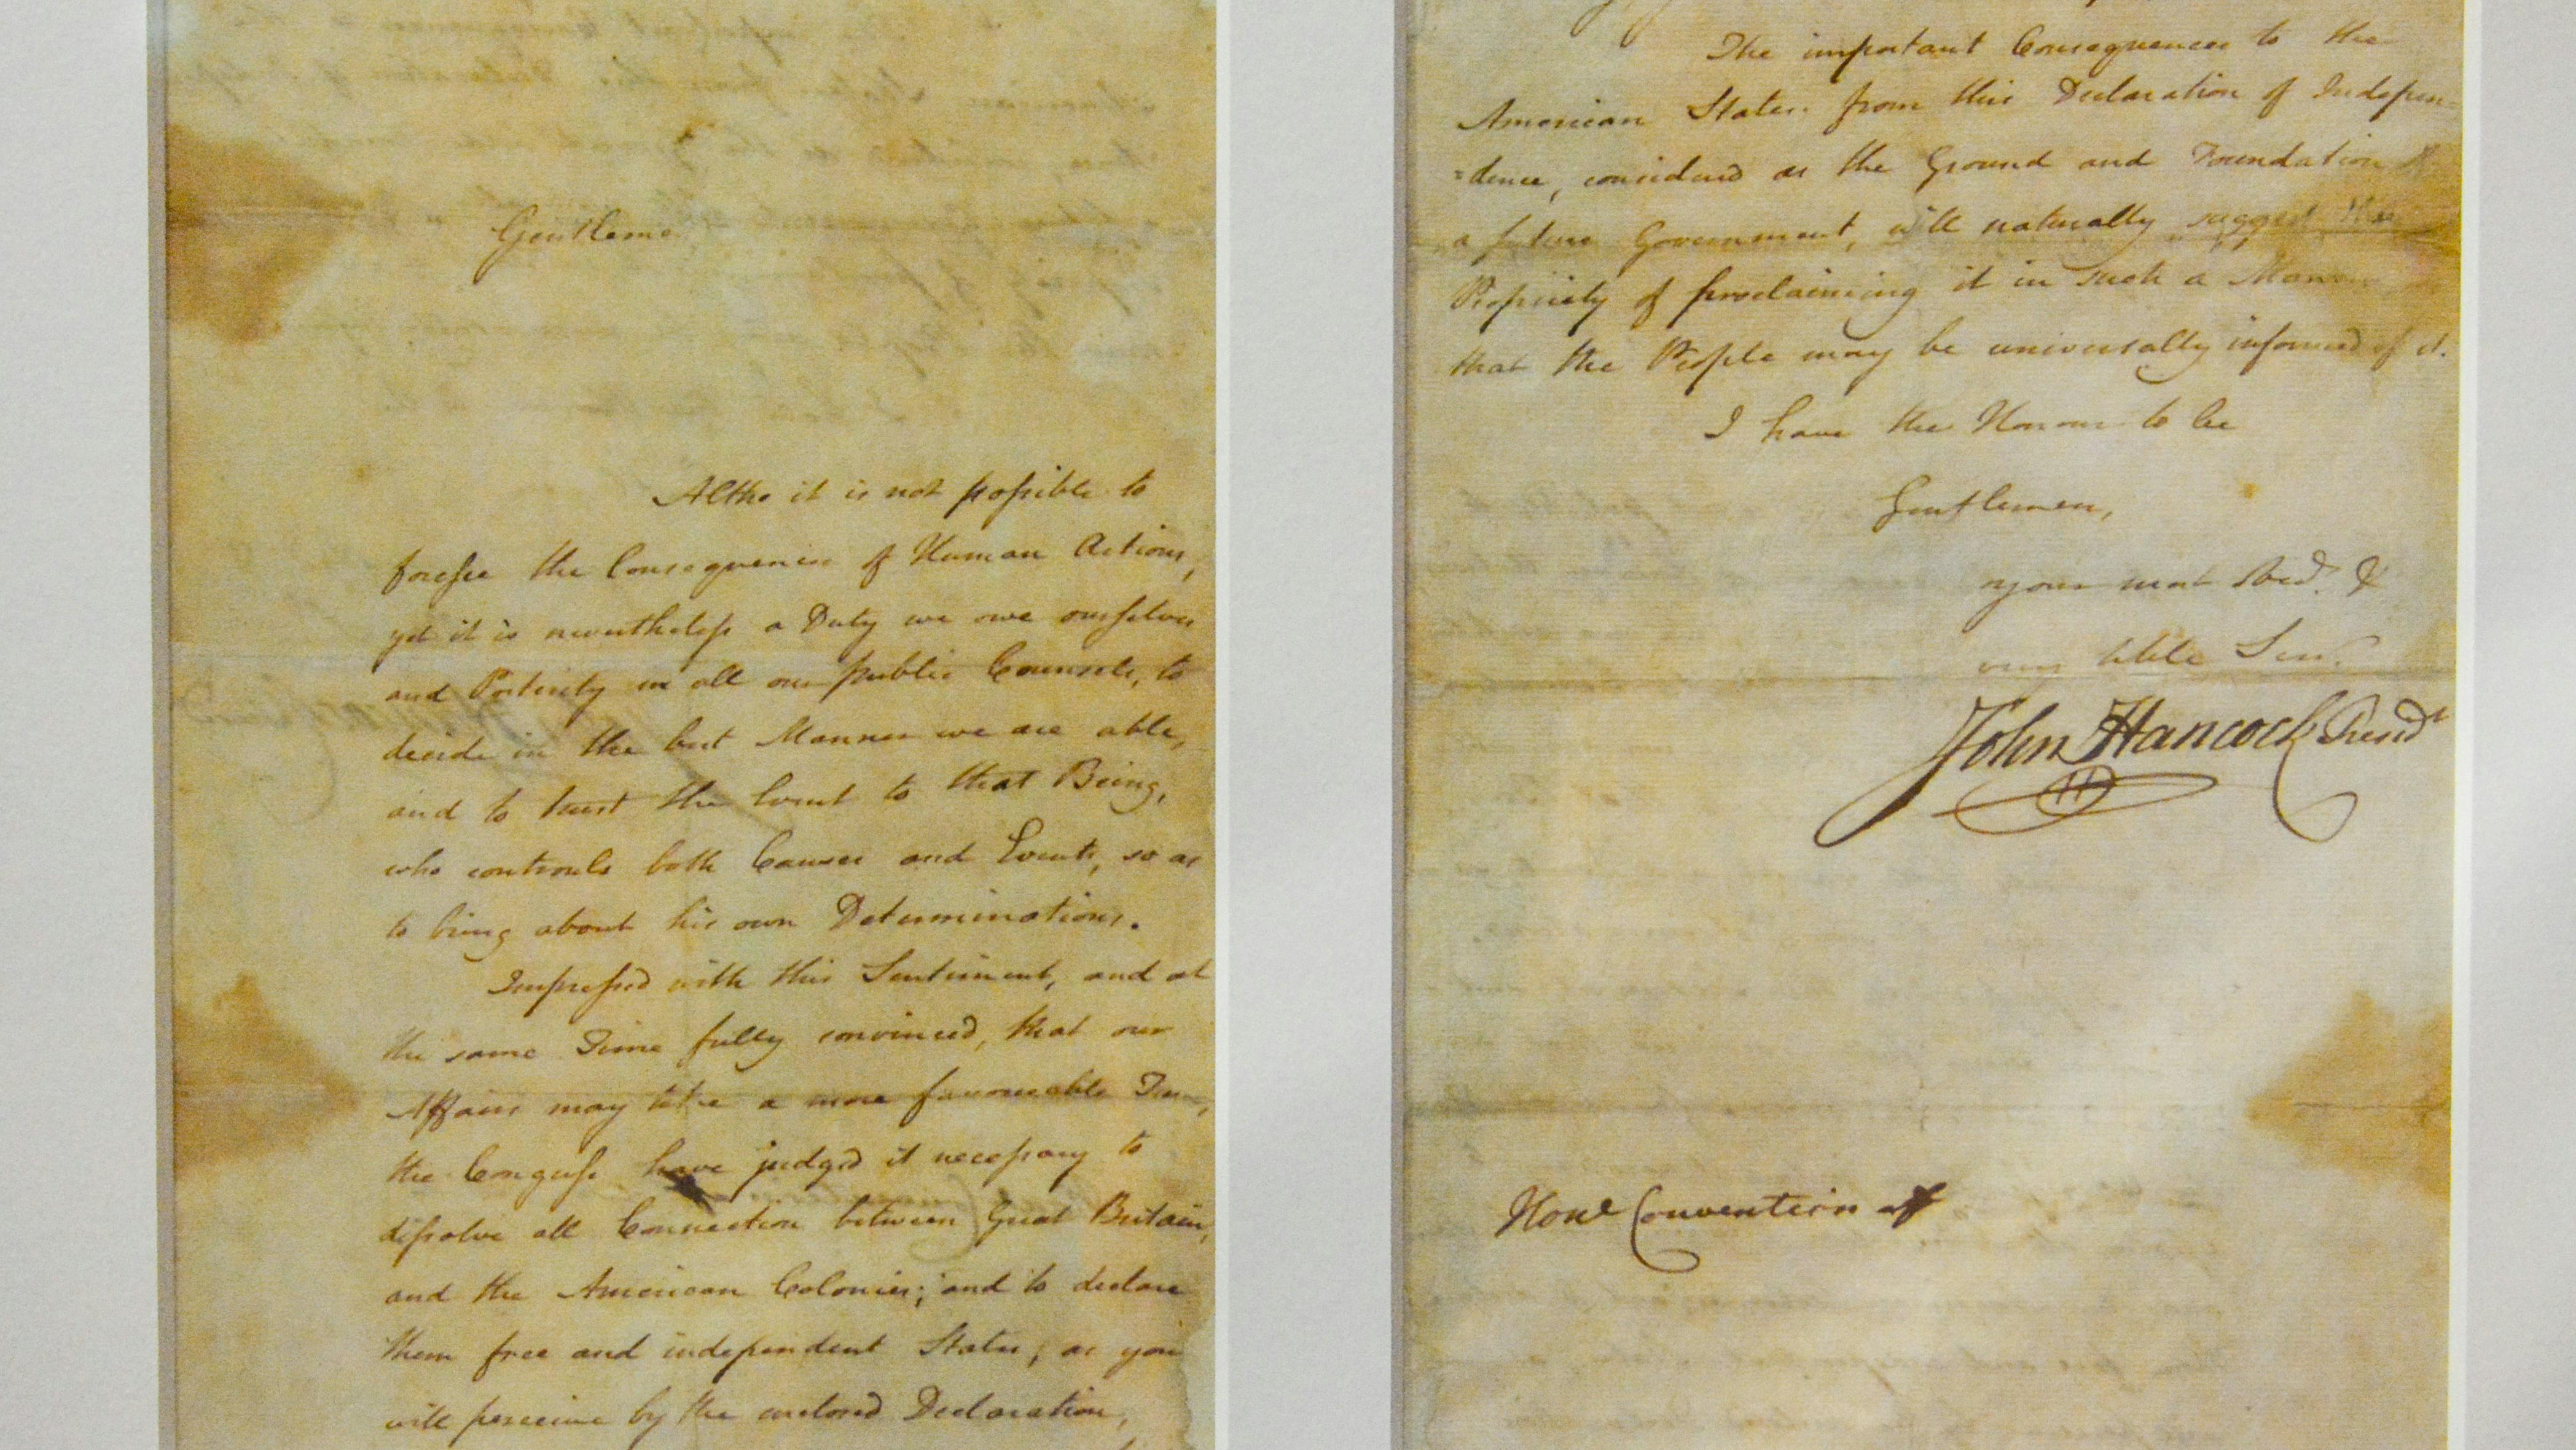 Gentlemen
Altho it is not possible to
foresee the Consequences of Human Actions,
yet it is nevertheless a Duty we owe ourselves
and Posterity in all our public Counsels, to
decide in the best Manner we are able,
and to trust the Event to that Being,
who controuls both Causes and Events, so as
to bring about his own Determinations.
Impressed with this Sentiment, and at
the same Time fully convinced, that our
Affairs may take a more favourable Turn,
the Congress have judged it necessary to
dissolve all Connection between Great Britain,
and the American Colonies; and to declare
them free and independent States, as you
will perceive by the enclosed Declaration,
The important Consequences to the
American States from this Declaration of Indepen=
=dence, considered as the Ground and Foundation
a future Government, will naturally suggest the
Propriety of proclaiming it in such a Manner
that the People may be universally informed of it.
I have the Honour to be
Gentlemen,
your most obedt. &
very hble Ser.
John Hancock Presidt
Honl Convention of